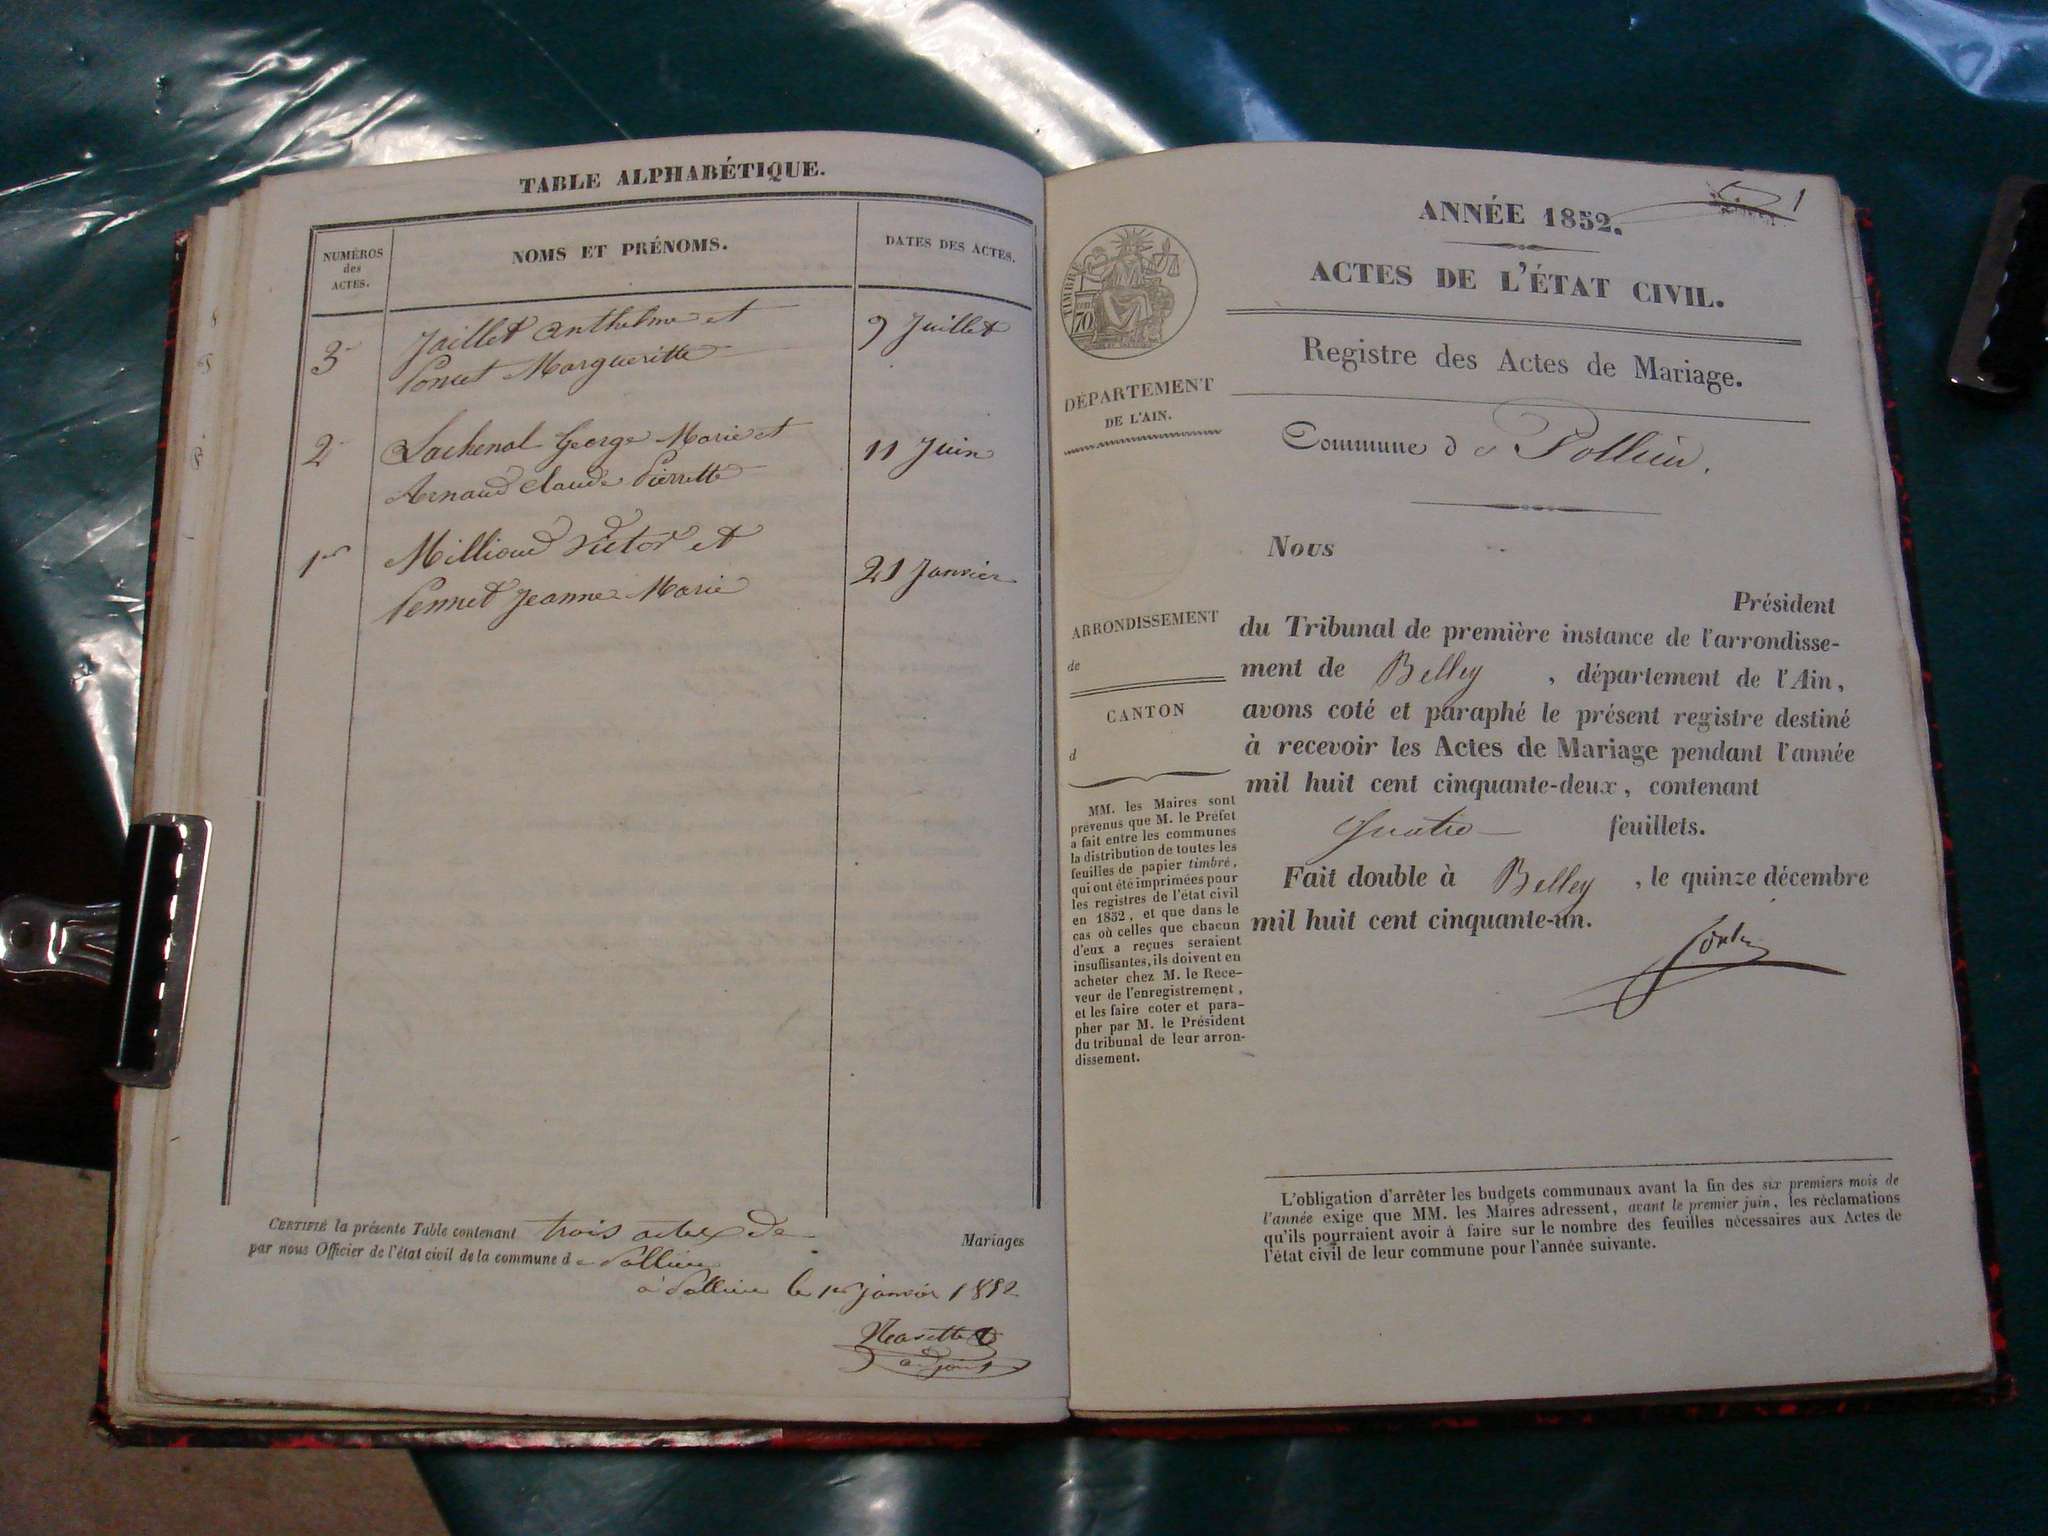 TABLE ALPHABÉTIQUE.
NUMÉROS
des
ACTES.
NOMS ET PRÉNOMS.
DATES DES ACTES.
3
Jaillet Anthelme et
Poncet Margueritte
9 Juillet
2
Lachenal George Marie et
Arnaud Claude Pierrette
11 Juin
1er
Milliand Victor et
Pennet Jeanne Marie
21 Janvier
CERTIFIÉ la présente Table contenant trois actes de Mariages
par nous Officier de l'état civil de la commune de Pollieu
à Pollieu le 1er janvier 1852
adjoint
1
ANNÉE 1852.
ACTES DE L'ÉTAT CIVIL.
Registre des Actes de Mariage.
Commune de Pollieu.
TIMBRE
70
DÉPARTEMENT
DE L'AIN.
ARRONDISSEMENT
de
CANTON
d
MM. les Maires sont
prévenus que M. le Préfet
a fait entre les communes
la distribution de toutes les
feuilles de papier timbré,
qui ont été imprimées pour
les registres de l'état civil
en 1852, et que dans le
cas où celles que chacun
d'eux a reçues seraient
insuffisantes, ils doivent en
acheter chez M. le Rece-
veur de l'enregistrement,
et les faire coter et para-
pher par M. le Président
du tribunal de leur arron-
dissement.
Nous
Président
du Tribunal de première instance de l'arrondisse-
ment de Belley, département de l'Ain,
avons coté et paraphé le présent registre destiné
à recevoir les Actes de Mariage pendant l'année
mil huit cent cinquante-deux, contenant
Quatre feuillets.
Fait double à Belley, le quinze décembre
mil huit cent cinquante-un.
L'obligation d'arrêter les budgets communaux avant la fin des six premiers mois de
l'année exige que MM. les Maires adressent, avant le premier juin, les réclamations
qu'ils pourraient avoir à faire sur le nombre des feuilles nécessaires aux Actes de
l'état civil de leur commune pour l'année suivante.